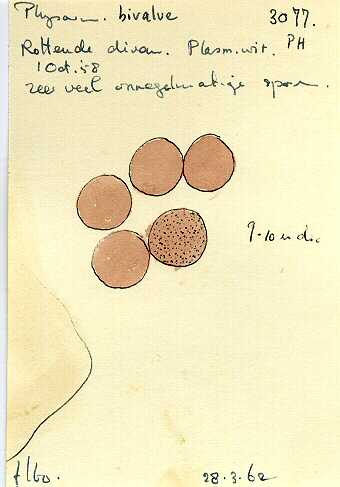 Physarum. bivalve 3077.
Rottende divan. Plasm. wit. PH
1 Oct. 58
zeer veel onregelmatige sporen.
9-10 u d.
Elbo.
28.3.62